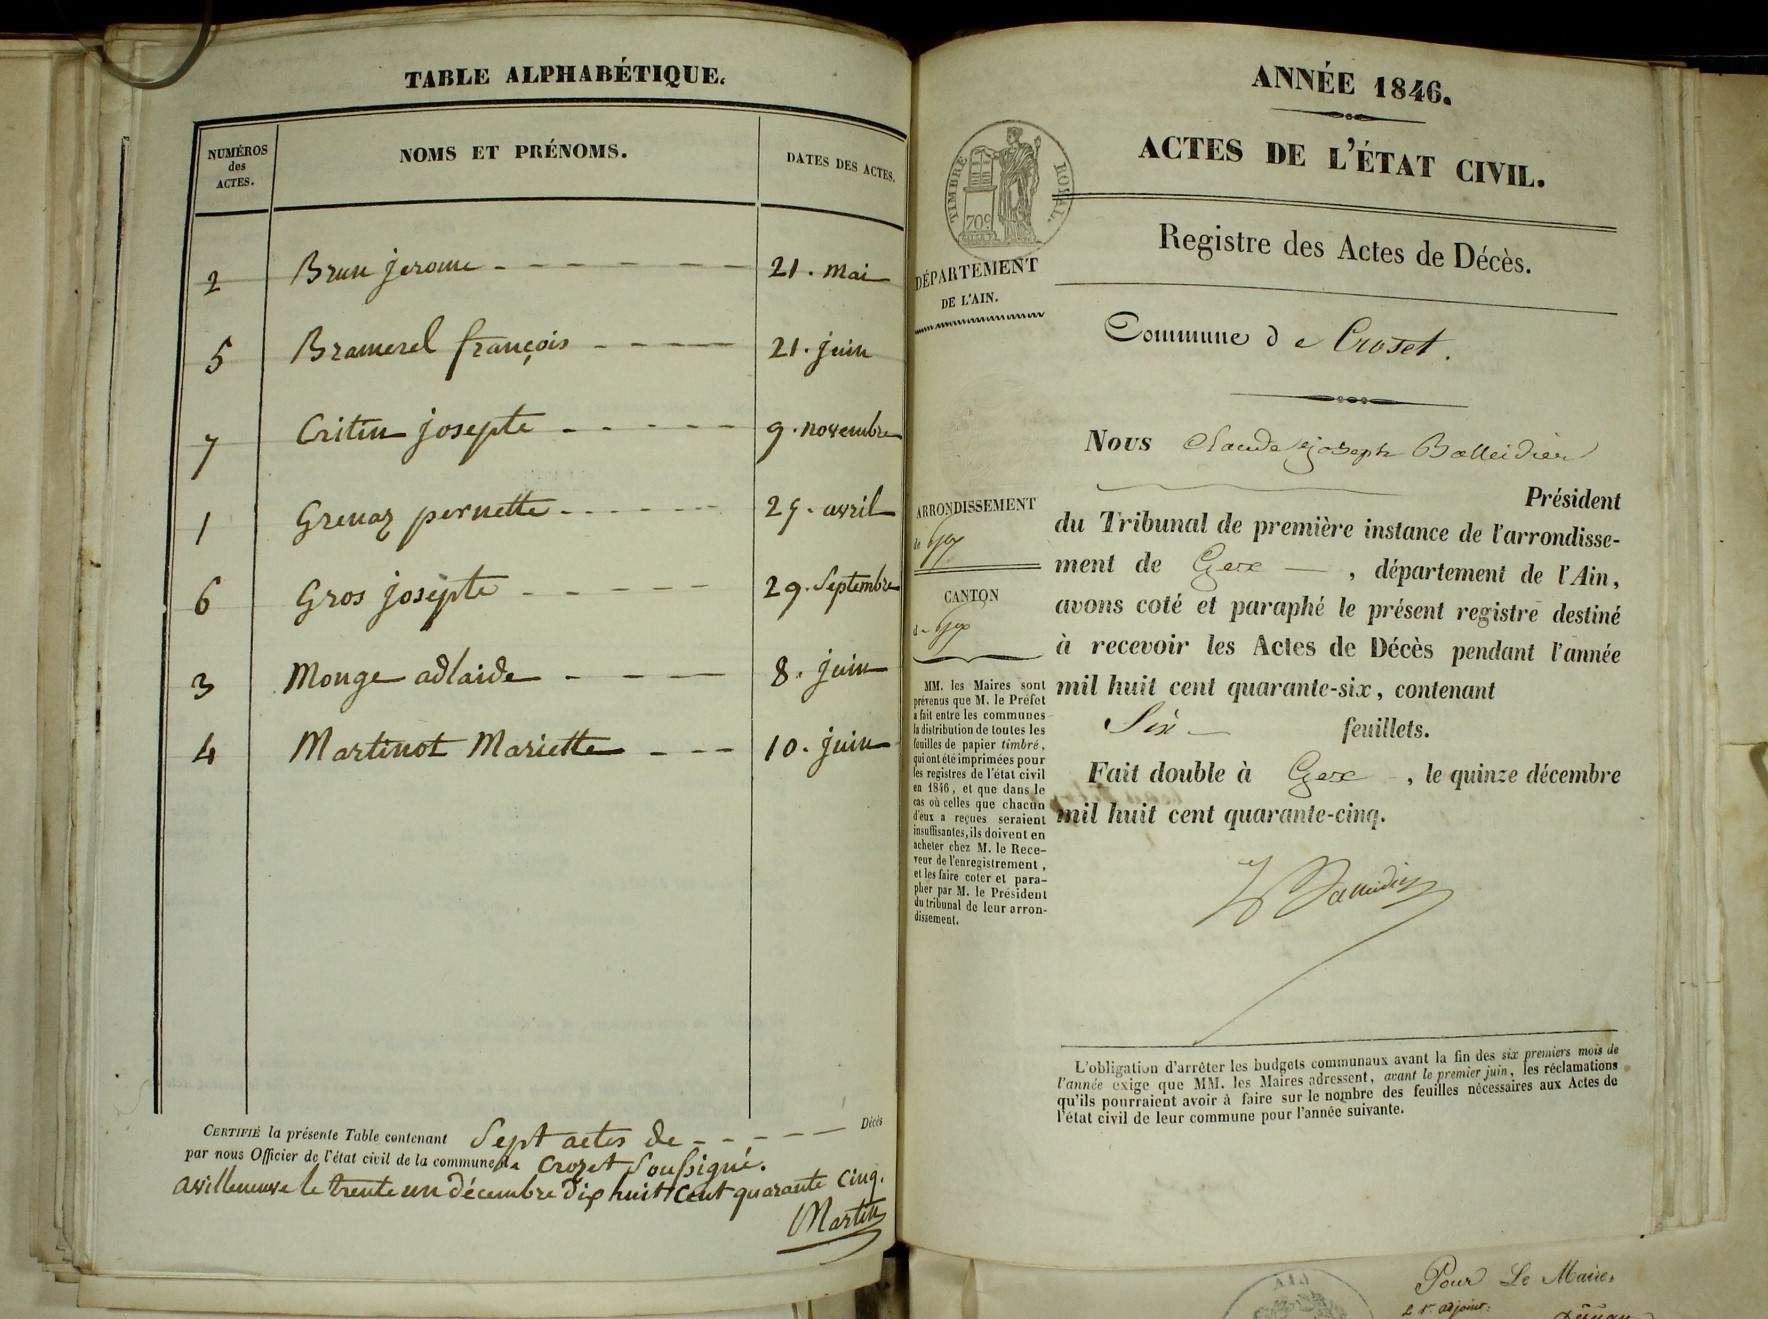 TABLE ALPHABÉTIQUE.
NUMÉROS des ACTES.
NOMS ET PRÉNOMS.
DATES DES ACTES.
2 Brun jerome - - - - - - - 21. mai
5 Bramerel françois - - - - 21. juin
7 Critin josepte - - - - - 9. novembre
1 Grenaz pernette - - - - - - 25. avril
6 Gros josepte - - - - - 29. Septembre
3 Monge adlaide - - - - 8. juin
4 Martinot Mariette - - - 10. juin
CERTIFIÉ la présente Table contenant Sept actes de - - - - - Décès
par nous Officier de l'état civil de la commune de Crozet Soussigné.
a villeneuve le trente un décembre dix huit cent quarante cinq.
Martin
ANNÉE 1846.
ACTES DE L'ÉTAT CIVIL.
TIMBRE ROYAL.
70c
Registre des Actes de Décès.
DÉPARTEMENT
DE L'AIN.
Commune de Croset.
Nous Claude joseph Balleidier
Président
du Tribunal de première instance de l'arrondisse-
ment de Gex — , département de l'Ain,
avons coté et paraphé le présent registre destiné
à recevoir les Actes de Décès pendant l'année
mil huit cent quarante-six, contenant
Six — feuillets.
Fait double à Gex , le quinze décembre
mil huit cent quarante-cinq.
ARRONDISSEMENT
de Gex
CANTON
de Gex
MM. les Maires sont
prévenus que M. le Préfet
a fait entre les communes
la distribution de toutes les
feuilles de papier timbré,
qui ont été imprimées pour
les registres de l'état civil
en 1846, et que dans le
cas où celles que chacun
d'eux a reçues seraient
insuffisantes, ils doivent en
acheter chez M. le Rece-
veur de l'enregistrement,
et les faire coter et para-
pher par M. le Président
du tribunal de leur arron-
dissement.
Balleidier
L'obligation d'arrêter les budgets communaux avant la fin des six premiers mois de
l'année exige que MM. les Maires adressent, avant le premier juin, les réclamations
qu'ils pourraient avoir à faire sur le nombre des feuilles nécessaires aux Actes de
l'état civil de leur commune pour l'année suivante.
Pour Le Maire,
adjoint: